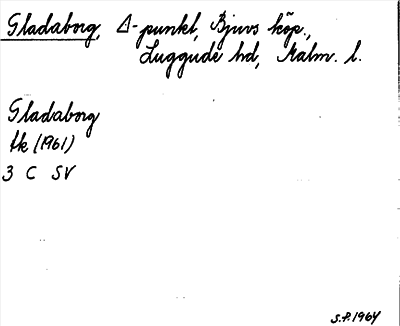 Gladaborg, Δ-punkt, Bjuvs köp.,
Luggude hd, Malm. l.
Gladaborg
tk (1961)
3 C SV
S.P. 1964